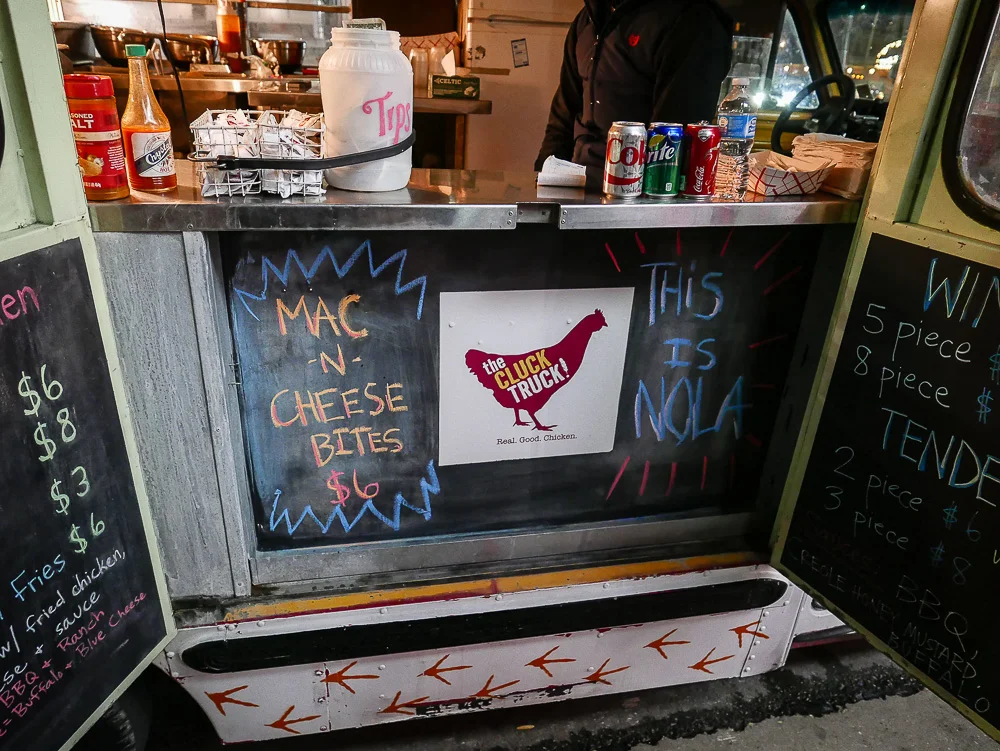 Tips
Crystal
CELTIC
Coke
Sprite
Coca-Cola
$6
$8
$3
$6
Fries
w/ fried chicken,
+ sauce
BBQ + Ranch
= Buffalo + Blue Cheese
MAC
-N-
CHEESE
BITES
$6
the
CLUCK
TRUCK!
Real. Good. Chicken.
THiS
IS
NOLA
5 piece $
8 piece $
2 piece $6
3 piece $8
BBQ,
HONEY MUSTARD,
BUFFALO